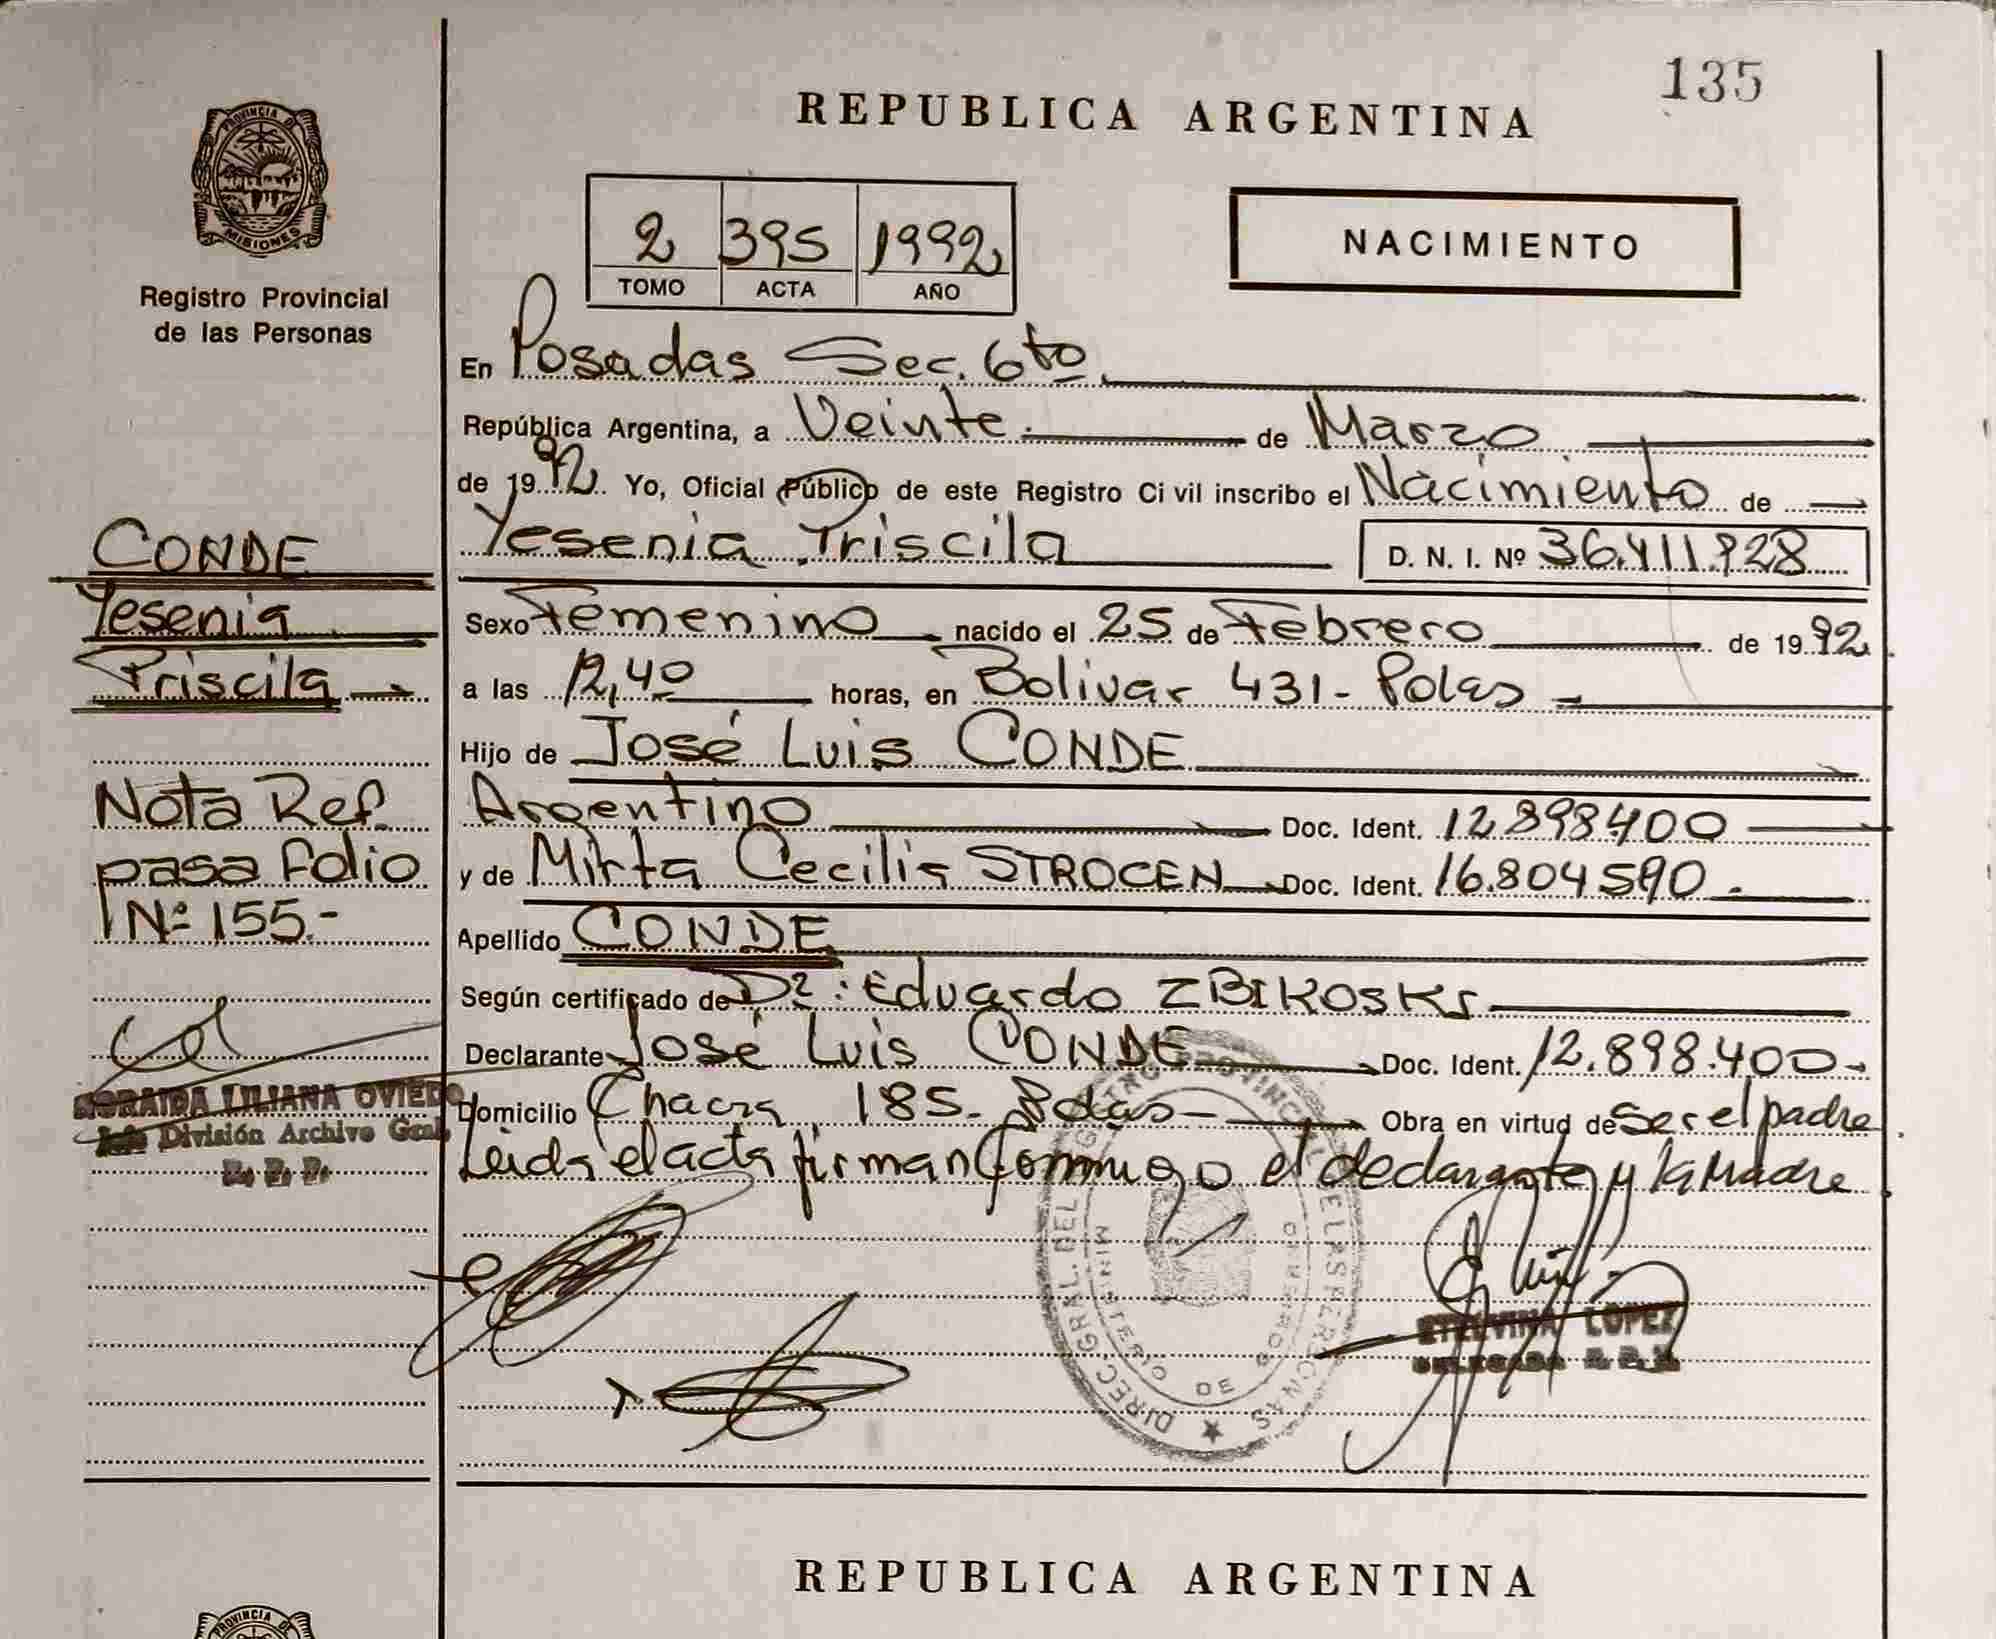 135
REPUBLICA ARGENTINA
PROVINCIA DE
MISIONES
Registro Provincial
de las Personas
2 395 1992
TOMO ACTA AÑO
NACIMIENTO
En Posadas Sec. 6to.
República Argentina, a Veinte. de Marzo
de 1992. Yo, Oficial Público de este Registro Civil inscribo el Nacimiento de
Yesenia Priscila D. N. I. Nº 36.411.928
CONDE
Yesenia
Priscila
Sexo Femenino nacido el 25 de Febrero de 1992.
a las 12,40 horas, en Bolivar 431- Pdas
Hijo de José Luis CONDE
Argentino Doc. Ident. 12.898.400
y de Mirta Cecilia STROCEN Doc. Ident. 16.804.590.
Apellido CONDE
Nota Ref.
pasa folio
Nº 155.-
Según certificado de Dr: Eduardo ZBIKOSKI
Declarante José Luis CONDE Doc. Ident. 12.898.400-
Domicilio Chacra 185. Pdas- Obra en virtud de Ser el padre
Leida el acta firman Conmigo el declarante y la Madre
NORAIDA LILIANA OVIEDO
Jefe División Archivo Gral.
R. P. P.
DIREC. GRAL. DEL REGISTRO PROVINCIAL DE LAS PERSONAS
MINISTERIO DE GOBIERNO
ETELVINA LOPEZ
DELEGADA R. P. P.
REPUBLICA ARGENTINA
PROVINCIA DE